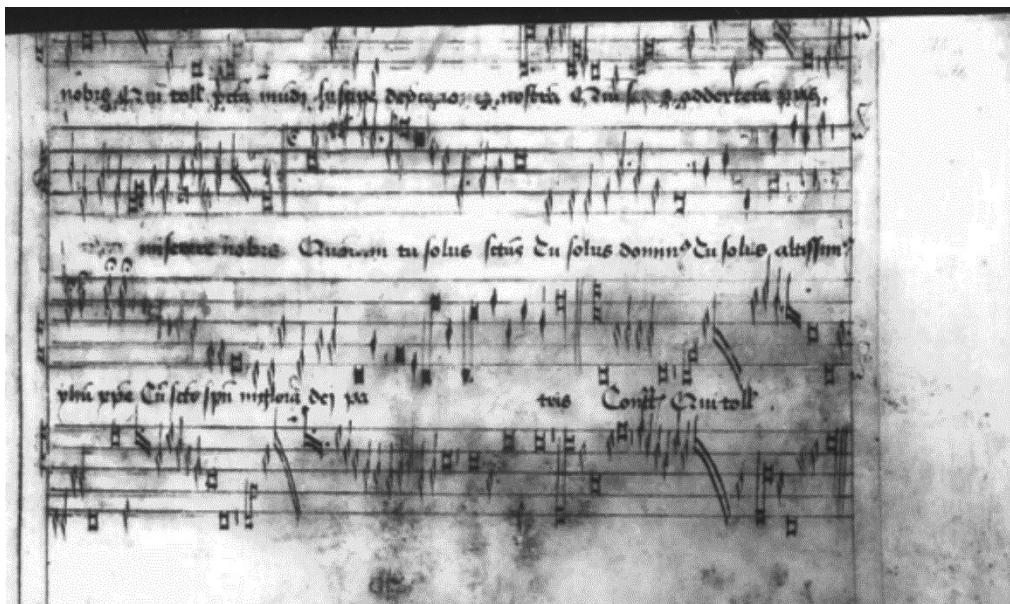 nobis Qui toll pctā mudi suscipe depcaonē nostrā Qui sedes ad dexterā pris
miserere nobis Quoniam tu solus sctus Tu solus domin⁹ Tu solus altissim⁹
yhū xpe Cū sctō spū in gloria dei pa tris Contr Qui toll